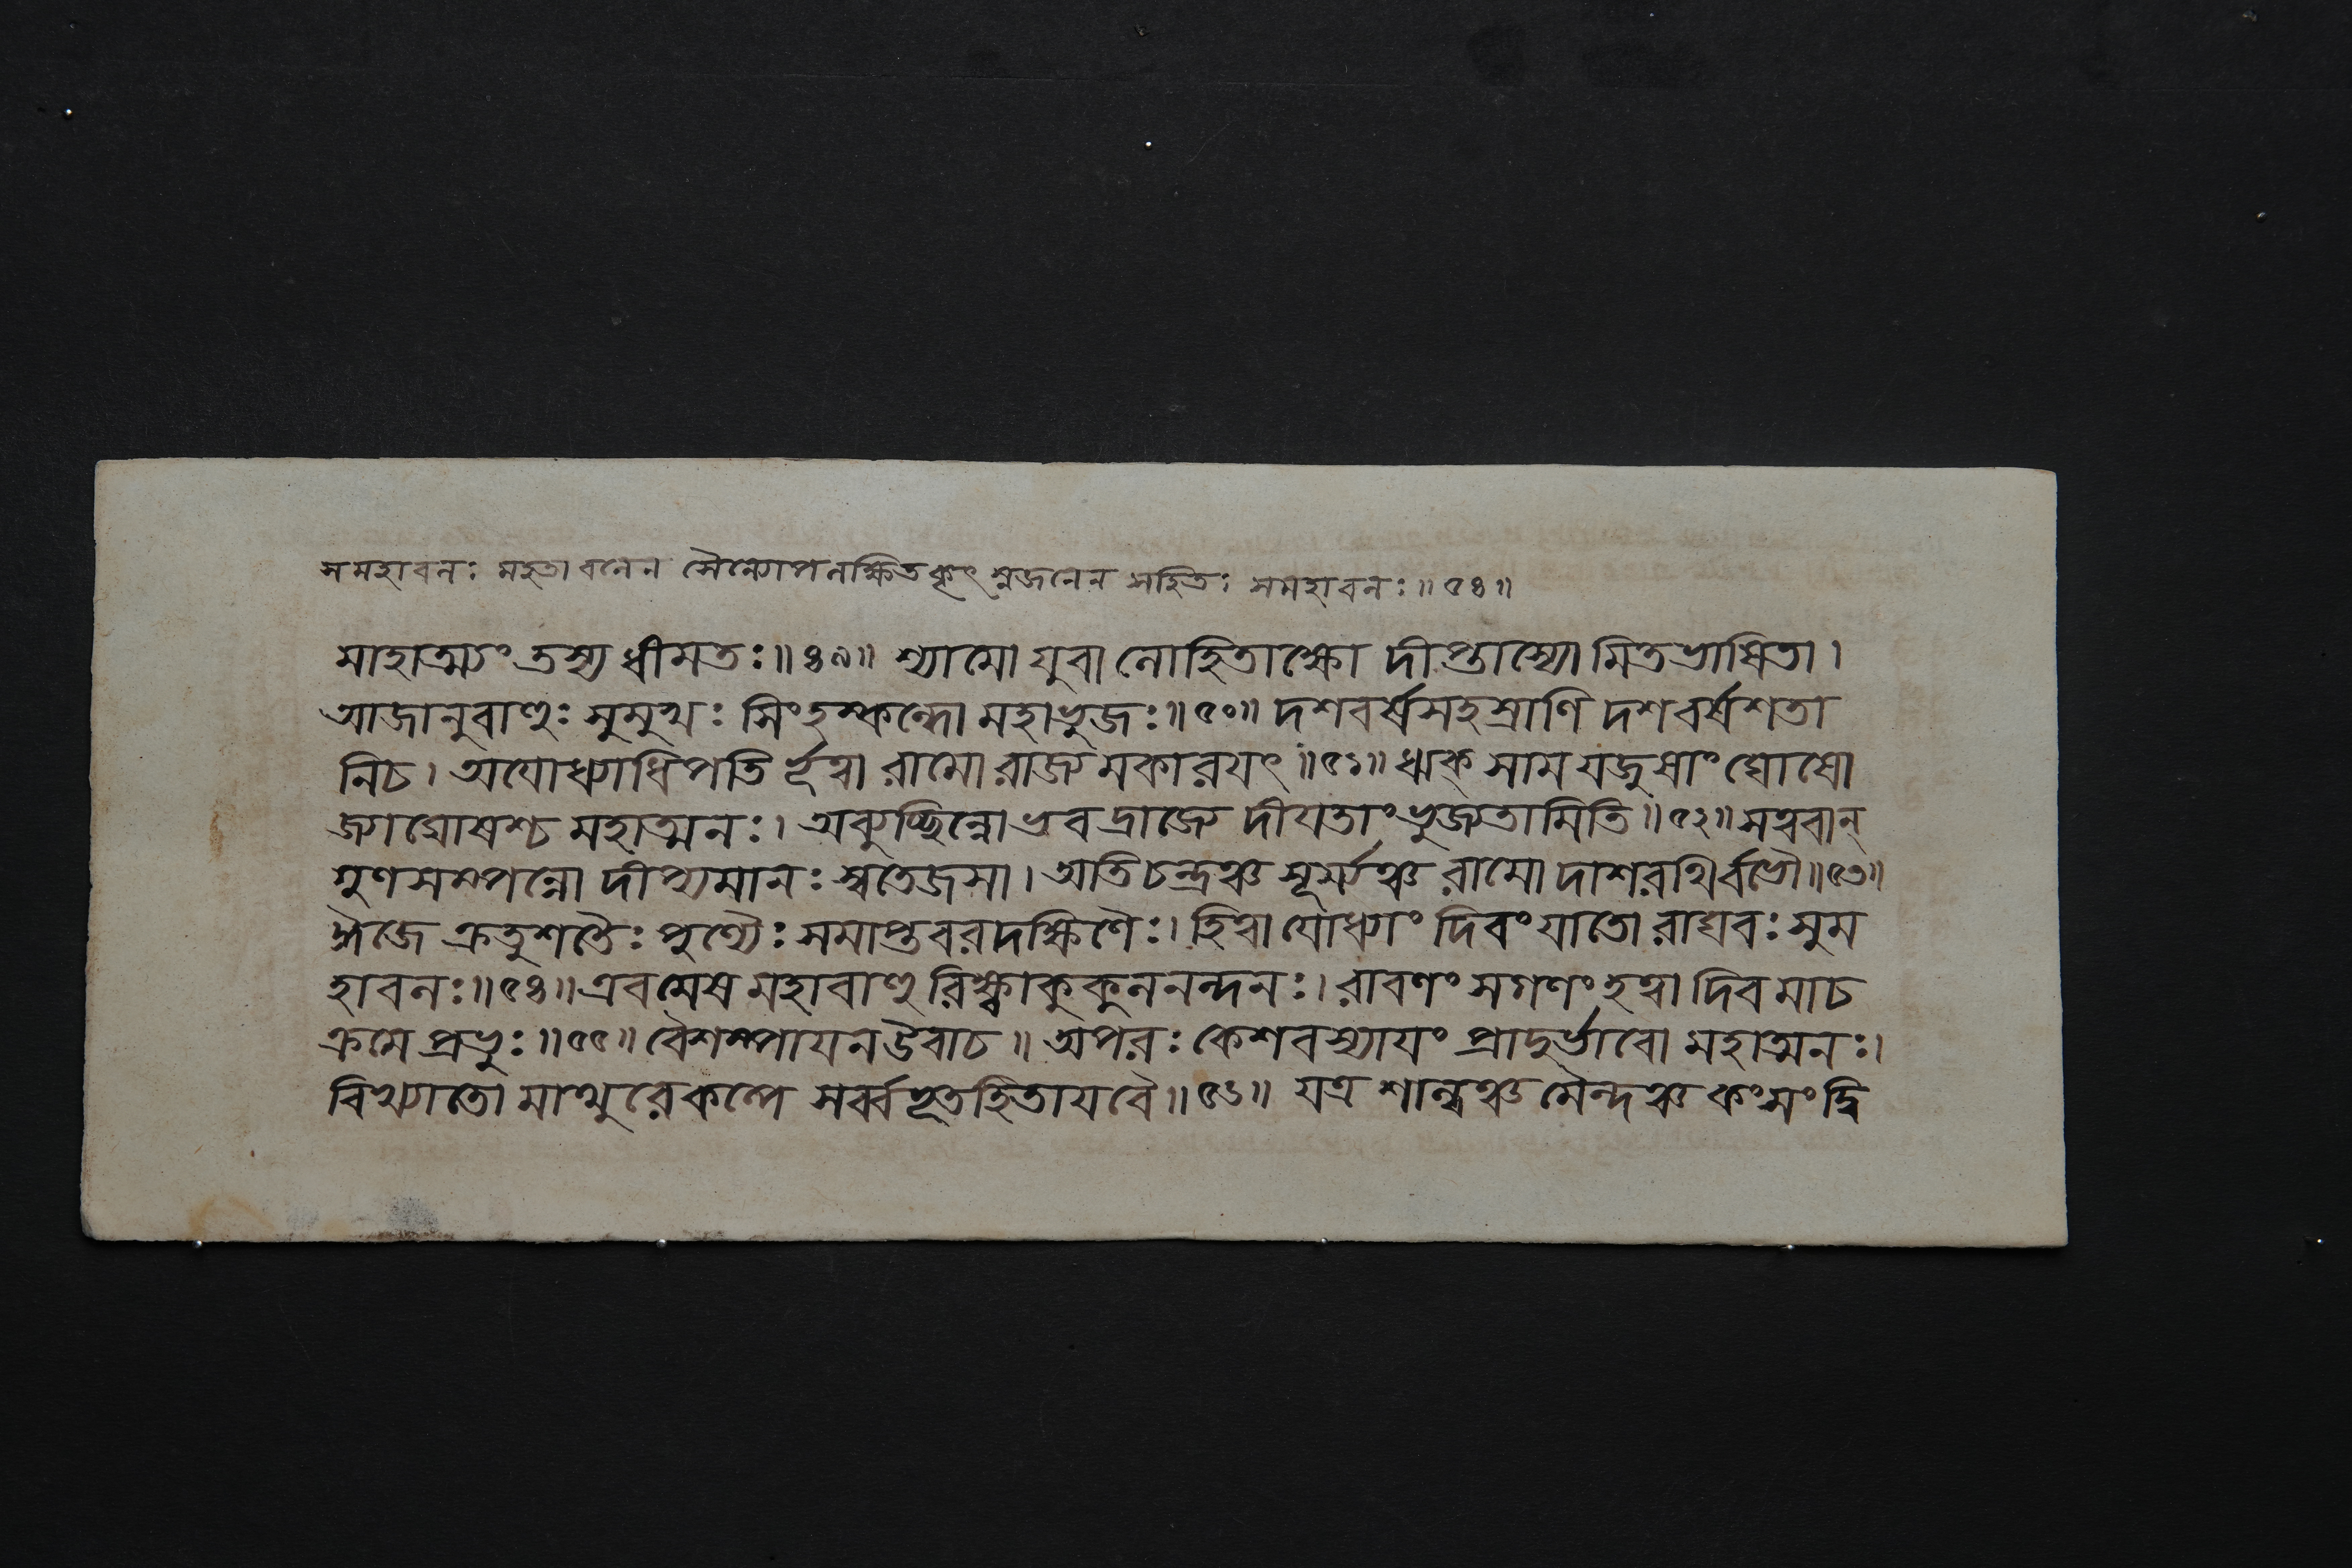 সমহাবলঃ মহতা বলেন সৈন্যেনোপলক্ষিতত্বাৎ স্বজনেন সহিতঃ সমহাবলঃ ॥ ৫৪ ॥
মাহাত্ম্যং তস্য ধীমতঃ ॥ ৪৯ ॥ শ্যামো যুবা লোহিতাক্ষো দীপ্তাস্যো মিতভাষিতা ।
আজানুবাহুঃ সুমুখঃ সিংহস্কন্দো মহাভুজঃ ॥ ৫০ ॥ দশবর্ষসহস্রাণি দশবর্ষশতা
নিচ । অযোধ্যাধিপতি র্ভূত্বা রামো রাজ্যমকারযৎ ॥ ৫১ ॥ ঋক্ সাম যজুষাং ঘোষো
জ্যাঘোষশ্চ মহাত্মনঃ । অব্যুচ্ছিন্নোভবদ্রাজ্যে দীযতাং ভুজ্যতামিতি ॥ ৫২ ॥ সত্ববান্
গুণসম্পন্নো দীপ্যমানঃ স্বতেজসা । অতিচন্দ্রঞ্চ সূর্য্যঞ্চ রামো দাশরথির্বভৌ ॥ ৫৩ ॥
ঈজে ক্রতুশতৈঃ পুণ্যৈঃ সমাপ্তবরদক্ষিণৈঃ । হিত্বাযোধ্যাং দিবং যাতো রাঘবঃ সুম
হাবলঃ ॥ ৫৪ ॥ এবমেষ মহাবাহু রিক্ষ্বাকুকুলনন্দনঃ । রাবণং সগণং হত্বা দিবমাচ
ক্রমে প্রভুঃ ॥ ৫৫ ॥ বৈশম্পাযনউবাচ ॥ অপরঃ কেশবস্যাযং প্রাদুর্ভাবো মহাত্মনঃ ।
বিখ্যাতো মাথুরেকল্পে সর্ব্বভূতহিতাযবৈ ॥ ৫৬ ॥ যত্র শাল্বঞ্চ মৈন্দঞ্চ কংসং দ্বি